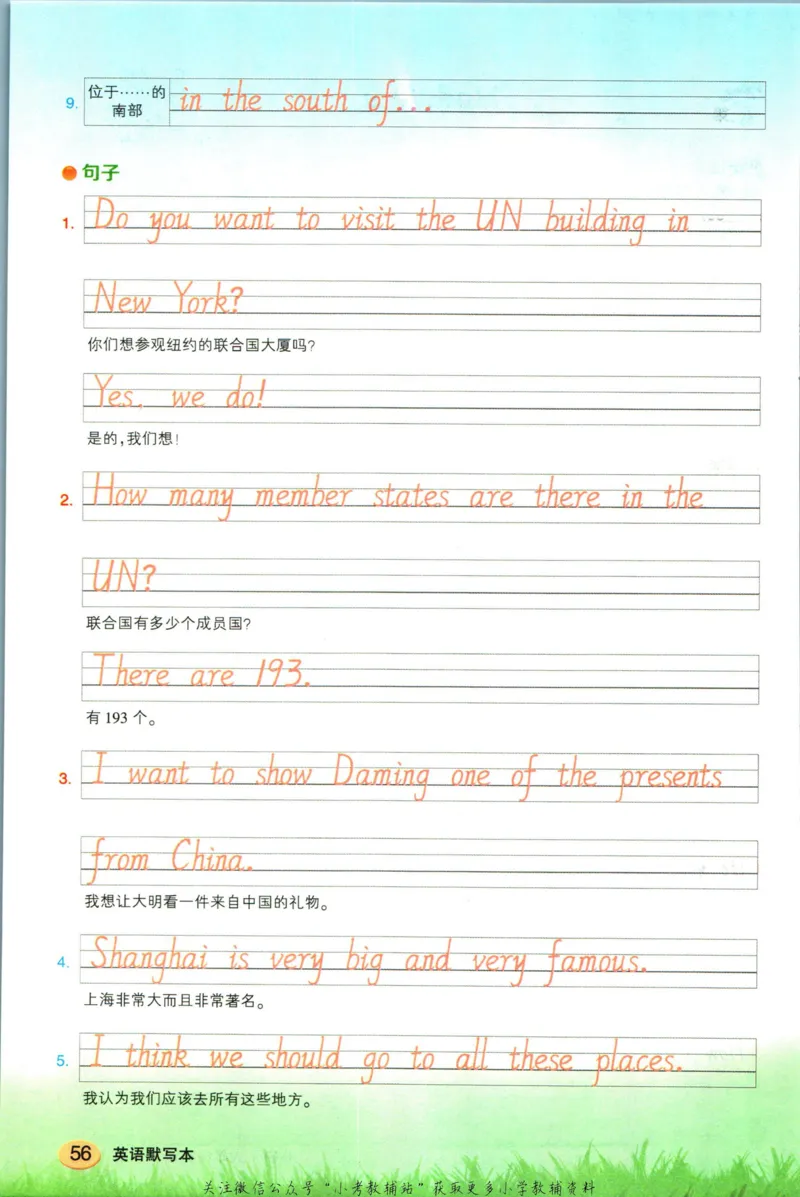 9. 位于……的
南部
in the south of...
句子
1. Do you want to visit the UN building in
New York?
你们想参观纽约的联合国大厦吗?
Yes, we do!
是的,我们想!
2. How many member states are there in the
UN?
联合国有多少个成员国?
There are 193.
有 193 个。
3. I want to show Daming one of the presents
from China.
我想让大明看一件来自中国的礼物。
4. Shanghai is very big and very famous.
上海非常大而且非常著名。
5. I think we should go to all these places.
我认为我们应该去所有这些地方。
56 英语默写本
关注微信公众号“小考教辅站”获取更多小学教辅资料